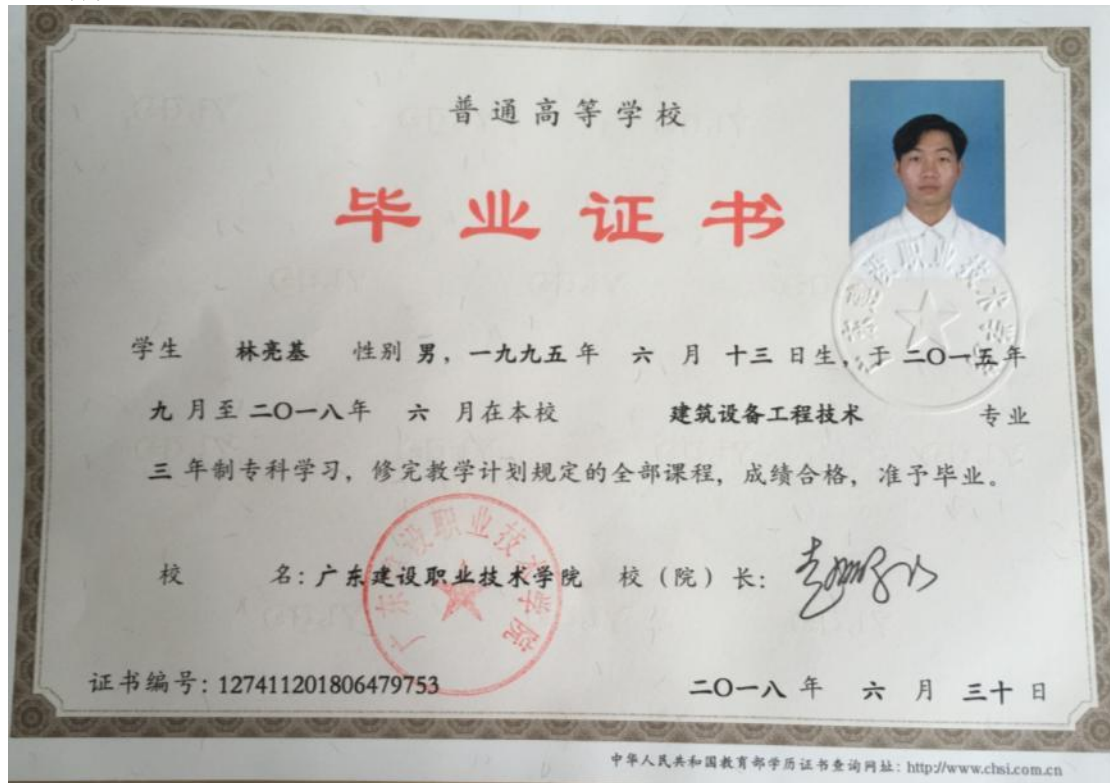 普通高等学校
毕业证书
学生 林亮基 性别 男，一九九五年 六 月 十三 日生，于 二〇一五年
九 月至 二〇一八年 六 月在本校 建筑设备工程技术 专业
三 年制专科学习，修完教学计划规定的全部课程，成绩合格，准予毕业。
校 名：广东建设职业技术学院 校（院）长：
证书编号：127411201806479753 二〇一八 年 六 月 三十 日
中华人民共和国教育部学历证书查询网址：http://www.chsi.com.cn